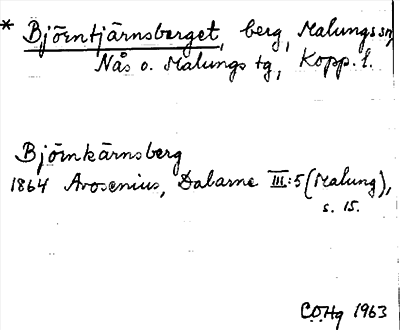 * Björntjärnsberget, berg, Malungs sn,
Nås o. Malungs tg, Kopp. l.
Björnkärnsberg
1864 Arosenius, Dalarne III:5 (Malung),
s. 15.
C.O.Hg 1963